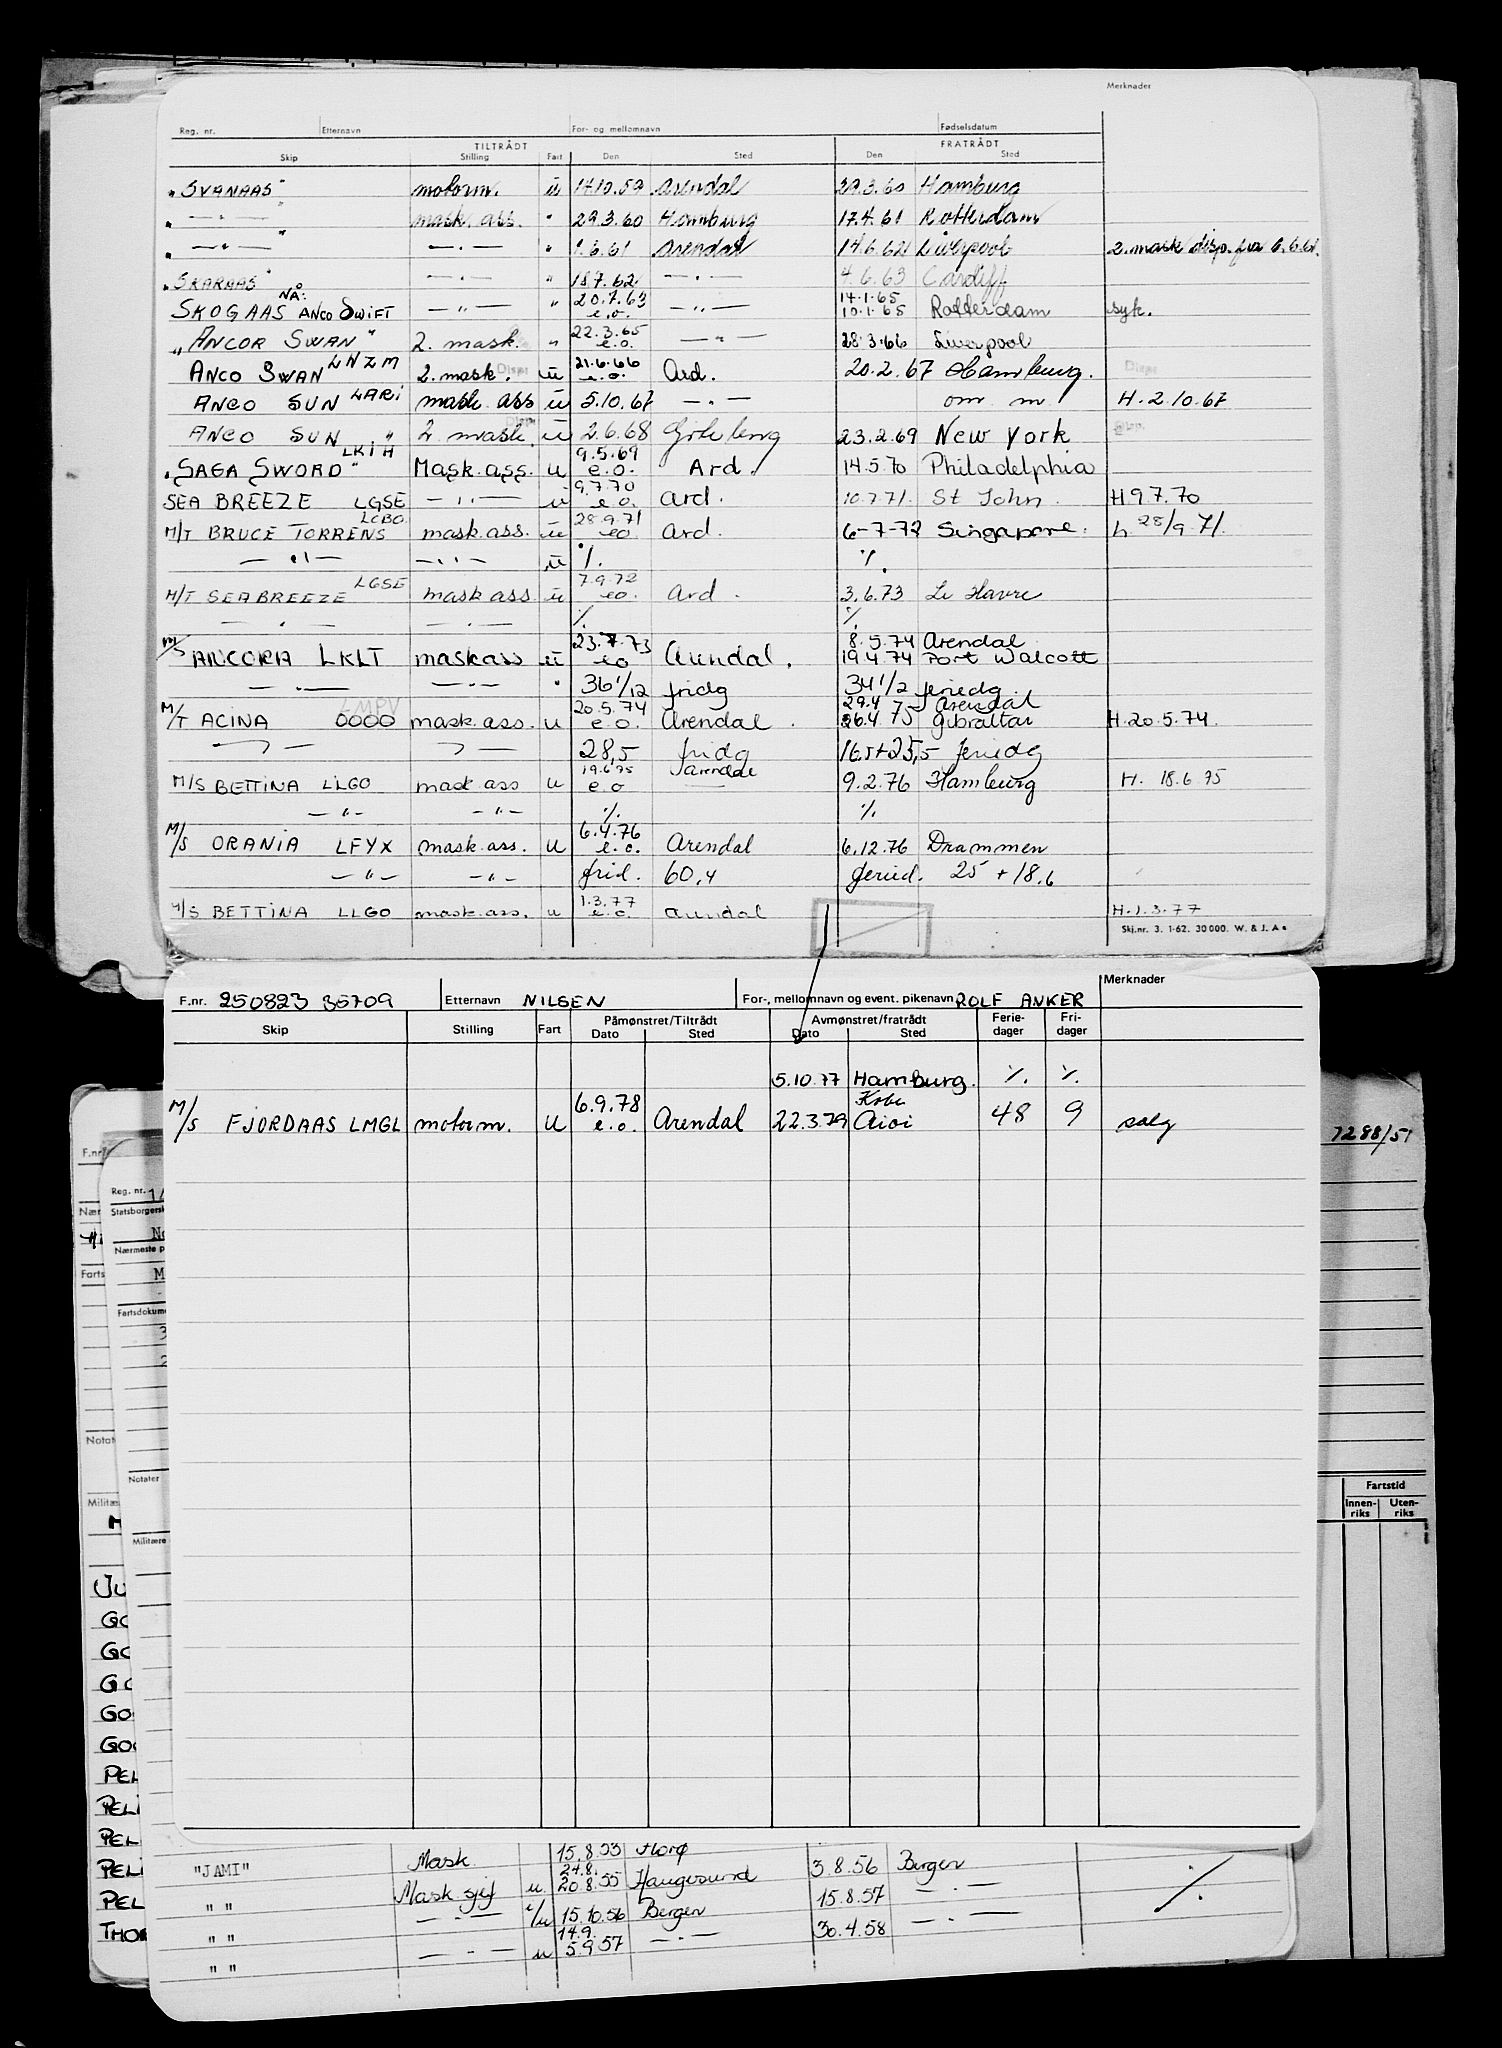 Merknader
Reg. nr. Etternavn For- og mellomnavn Fødselsdatum
TILTRÅDT FRATRÅDT
Skip Stilling Fart Den Sted Den Sted
"SVANAAS" motorm. u 14.10.59 Arendal 29.3.60 Hamburg
" — " — " mask. ass. " 29.3.60 Hamburg 17.4.61 Rotterdam
" — " — " — " — " 1.6.61 Arendal 14.6.62 Liverpool 2. mask disp. fra 6.6.61.
"SKARAAS" — " — " 18.7.62 — " — 4.6.63 Cardiff
NÅ: 20.7.63 14.1.65
SKOGAAS ANCO SWIFT — " — " e.o. — " — 10.1.65 Rotterdam syk.
22.3.65
"ANCOR SWAN" 2. mask. " e.o. — " — 28.3.66 Liverpool
LNZM 21.6.66
ANCO SWAN 2. mask. Disp u e.o. Ard. 20.2.67 Hamburg. Disp
ANCO SUN LARI mask ass u 5.10.67 — " — om. m. H. 2.10.67
ANCO SUN " 2. mask. u 2.6.68 Göteborg 23.2.69 New York
LKIH 9.5.69
"SAGA SWORD" Mask. ass. u e.o. Ard. 14.5.70 Philadelphia
9.7.70
SEA BREEZE LGSE — " — u e.o. Ard. 10.7.71. St John H 9.7.70
LCBO 28.9.71
M/T BRUCE TORRENS mask.ass. u eo Ard. 6-7-72 Singapore. h 28/9 71.
— " — — " — u %. %.
LGSE 7.9.72
M/T SEABREEZE mask ass. u eo. Ard. 3.6.73 Le Havre
— " — — " — %. %.
23.7.73 8.5.74 Arendal
M/S ANCORA LKLT mask ass u eo Arendal. 19.4.74 Port Walcott
— " — — " — " 36 1/12 fridg 34 1/2 feriedg.
LMPV 20.5.74 29.4 Arendal
M/T ACINA 0000 mask.ass. u e.o. Arendal. 26.4 75 Gibraltar H. 20.5.74.
— " — — " — 28,5 fridg 16,5+23,5 feriedg
19.6.75 Arendal
M/S BETTINA LLGO mask ass u e o — 9.2.76 Hamburg H. 18.6.75
— " — — " — %. %.
6.4.76
M/S ORANIA LFYX mask.ass. u e.o. Arendal 6.12.76 Drammen
— " — — " — frid. 60,4 feried. 25 + 18,6
1.3.77
M/S BETTINA LLGO mask.ass. u e.o. Arendal H. 1.3.77
Skj.nr. 3. 1-62. 30 000. W. & J. A.
F.nr. 250823 35709 Etternavn NILSEN For-, mellomnavn og event. pikenavn ROLF ANKER Merknader
Skip Stilling Fart Påmønstret/Tiltrådt Avmønstret/fratrådt Ferie- Fri-
Dato Sted Dato Sted dager dager
5.10.77 Hamburg. %. %.
6.9.78 Kobe
M/S FJORDAAS LMGL motorm. u e.o. Arendal 22.3.79 Aioi 48 9 salg
7288/51
F.nr
Reg. nr. 1
Statsborgersk
Nær No
Nærmeste p
Farts M
Fartsdokume
3
2
Notat
Notater
Militæ
Militære
Fartstid
Innen- Uten-
riks riks
JU
GO
GO
GO
GO
GO
PEL
PEL
PEL
PEL
PEL
THO
"JAMI" Mask. 15.8.53 Florø
24.8.
" " Mask sjef u 20.8.55 Haugesund 3.8.56 Bergen %
" " — " — i/u 15.10.56 Bergen 15.8.57 — " —
14.9.
" " — " — u 5.9.57 — " — 30.4.58 — " —